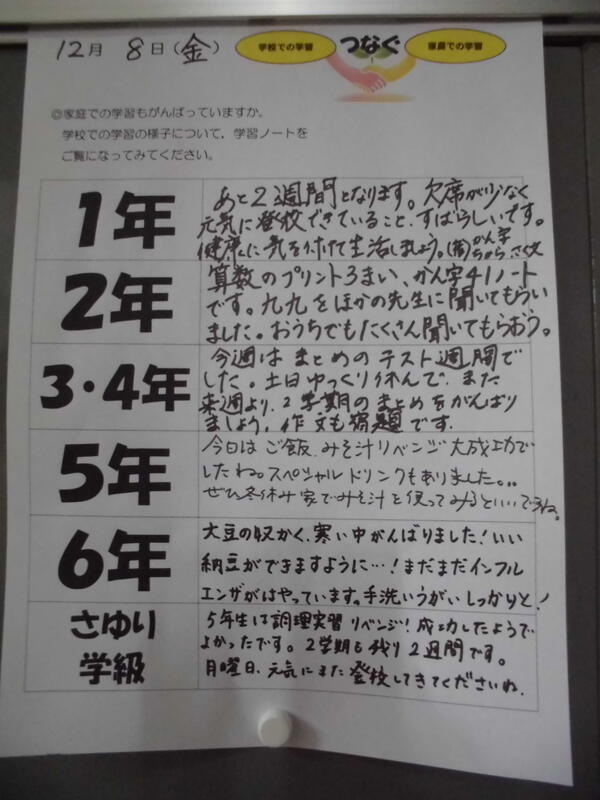 12月 8日(金)
学校での学習 つなぐ 家庭での学習
◎家庭での学習もがんばっていますか。
学校での学習の様子について、学習ノートを
ご覧になってみてください。
1年
あと2週間となります。欠席が少なく
元気に登校できていること、すばらしいです。
健康に気を付けて生活しましょう。(宿)かん字
ちょう、さく文
2年
算数のプリント3まい、かん字41ノート
です。九九をほかの先生に聞いてもらい
ました。おうちでもたくさん聞いてもらおう。
3・4年
今週はまとめのテスト週間で
した。土日ゆっくり休んで、また
来週より、2学期のまとめをがんばり
ましょう。作文も宿題です。
5年
今日はご飯、みそ汁リベンジ大成功で
したね。スペシャルドリンクもありました。。
ぜひ冬休み家でみそ汁を使ってみるといいですね。
6年
大豆の収かく、寒い中がんばりました!いい
納豆ができますように…!まだまだインフル
エンザがはやっています。手洗いうがいしっかりと!
さゆり
学級
5年生は調理実習リベンジ!成功したようで
よかったです。2学期も残り2週間です。
月曜日、元気にまた登校してきてくださいね。